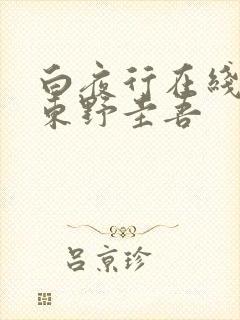 白夜行在线
东野圭吾
吕京珍